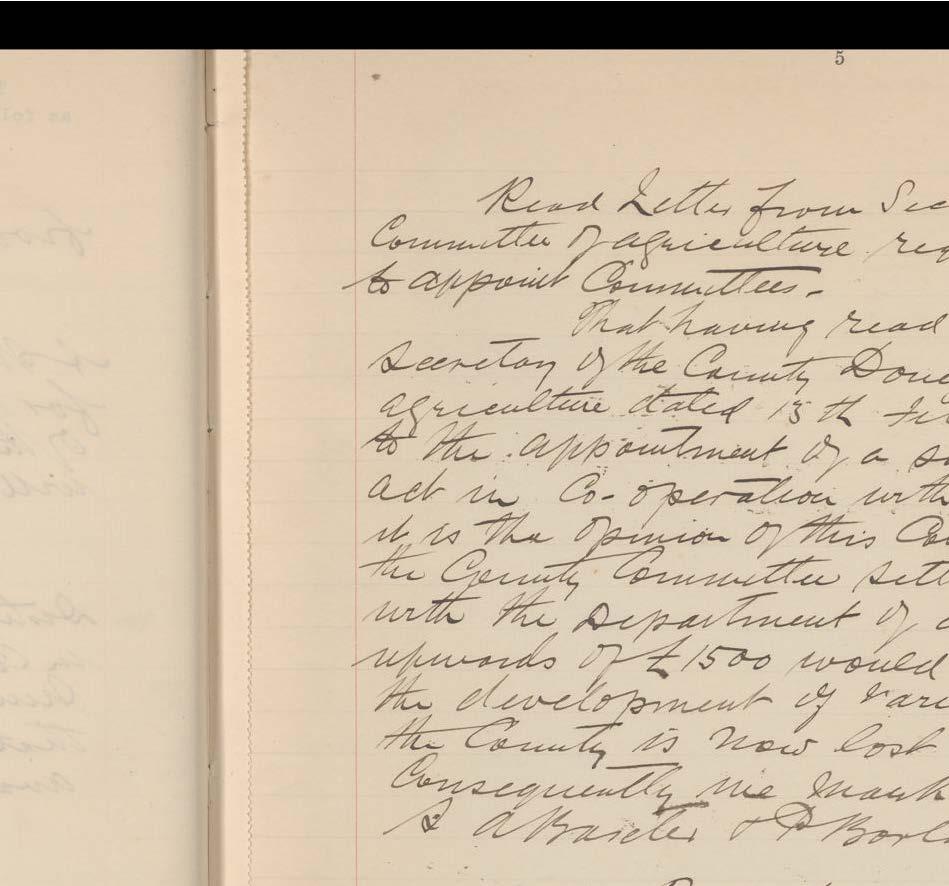 5
Read Letter from Sec
Committee of agriculture req
to appoint Committees.
That having read
Secretary of the County Done
agriculture dated 15th
to the appointment of a su
act in Co-operation with
it is the opinion of this Co
the County Committee sett
with the Department of a
upwards of £1500 would
the development of vari
the County is now lost
Consequently we
& P